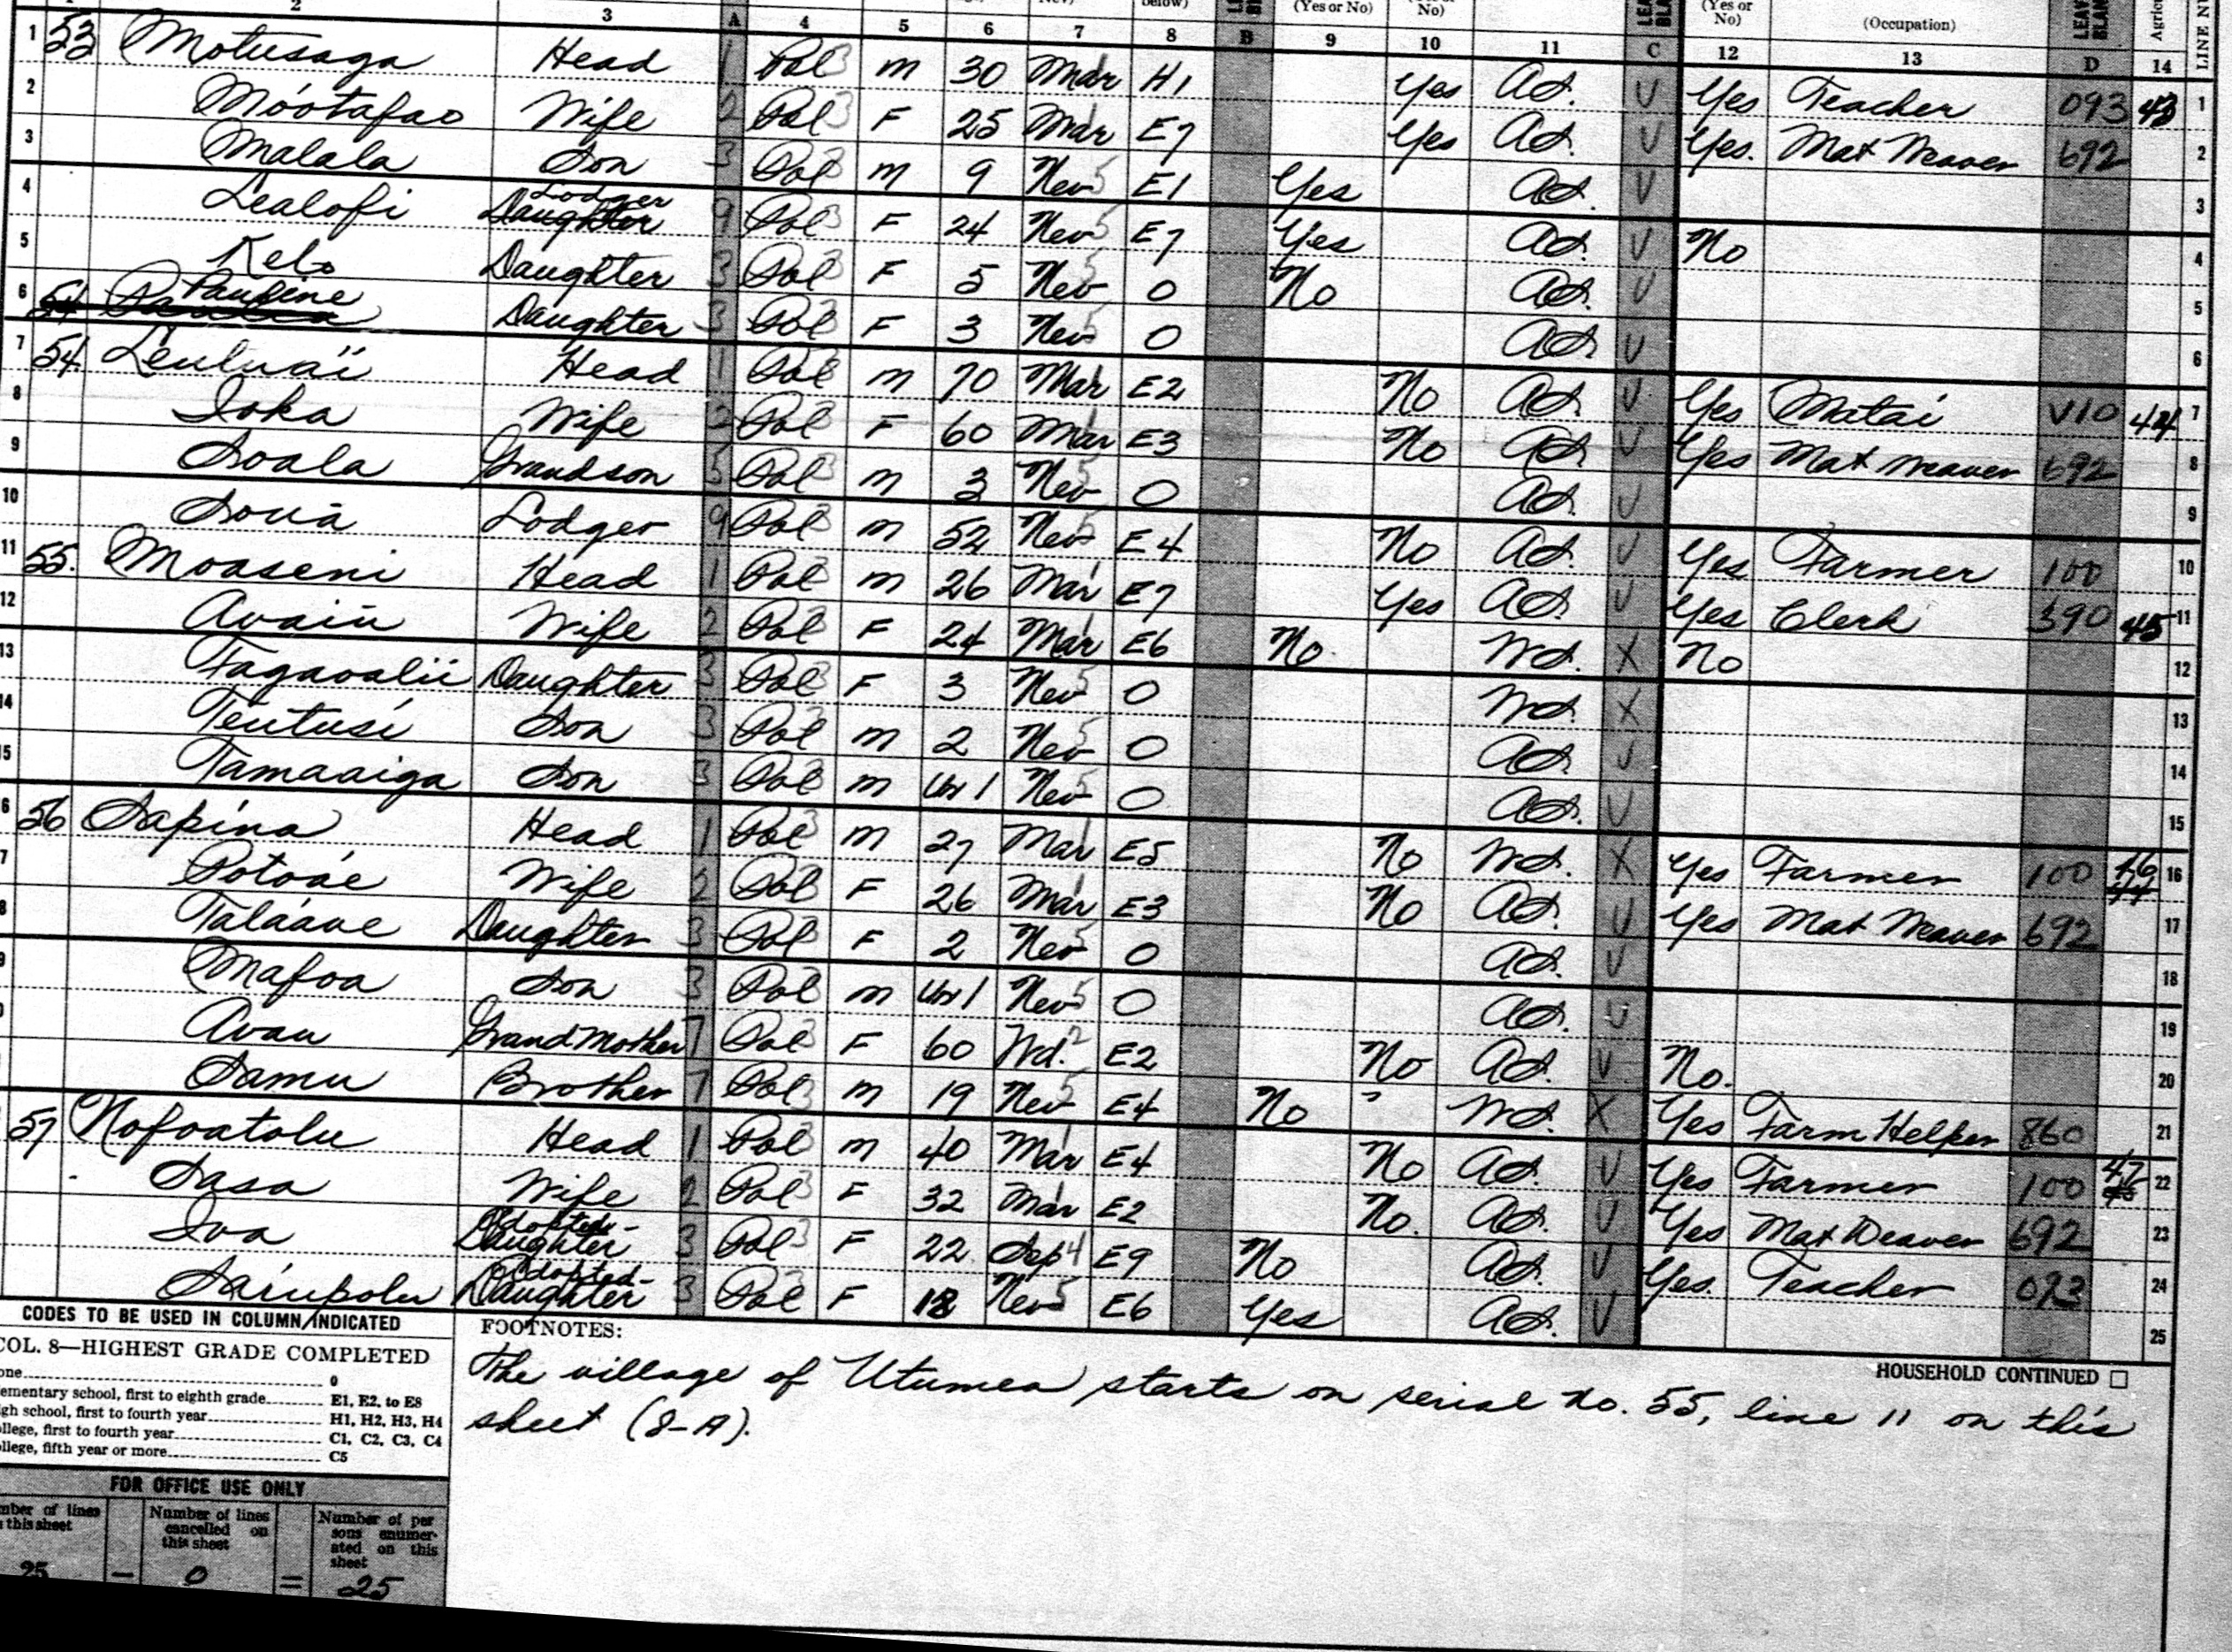 2 3 A 4 5 6 7 8 B 9 10 11 C 12 13 D 14
below) (Yes or No) No) (Yes or No) (Occupation) LEAVE BLANK LINE
1 53 Motusaga Head 1 Pol 3 M 30 Mar 1 H1 Yes Ad. V Yes Teacher 093 43 1
2 Móotafao Wife 2 Pol 3 F 25 Mar 1 E7 Yes Ad. V Yes. Mat Weaver 692 2
3 Malala Son 3 Pol 3 M 9 Nev 5 E1 Yes Ad. V 3
4 Lealofi Daughter Lodger 9 Pol 3 F 24 Nev 5 E7 Yes Ad. V No 4
5 Kelo Daughter 3 Pol 3 F 5 Nev 5 0 No Ad. V 5
6 54 Pauline Daughter 3 Pol 3 F 3 Nev 5 0 Ad. V 6
7 54. Leuluaii Head 1 Pol 3 M 70 Mar 1 E2 No Ad. V Yes Matai V10 44 7
8 Ioka Wife 2 Pol 3 F 60 Mar 1 E3 No Ad. V Yes Mat Weaver 692 8
9 Soala Grandson 5 Pol 3 M 3 Nev 5 0 Ad. V 9
10 Souā Lodger 9 Pol 3 M 52 Nev 5 E4 No Ad. V Yes Farmer 100 10
11 55. Moaseni Head 1 Pol 3 M 26 Mar 1 E7 Yes Ad. V Yes Clerk 390 45 11
12 Avaiū Wife 2 Pol 3 F 24 Mar 1 E6 No. Wd. X No 12
13 Fagavalii Daughter 3 Pol 3 F 3 Nev 5 0 Wd. X 13
14 Teutusi Son 3 Pol 3 M 2 Nev 5 0 Ad. V 14
15 Tamaaiga Son 3 Pol 3 M Un 1 Nev 5 0 Ad. V 15
6 56 Sapina Head 1 Pol 3 M 27 Mar 1 E5 No Wd. X Yes Farmer 100 46 16
7 Potoae Wife 2 Pol 3 F 26 Mar 1 E3 No Ad. V Yes Mat Weaver 692 17
8 Taláave Daughter 3 Pol 3 F 2 Nev 5 0 Ad. V 18
9 Mafoa Son 3 Pol 3 M Un 1 Nev 5 0 Ad. V 19
0 Avau Grand Mother 7 Pol 3 F 60 Wd. 2 E2 No Ad. V No. 20
Samu Brother 7 Pol 3 M 19 Nev 5 E4 No Wd. X Yes Farm Helper 860 21
57 Nofoatolu Head 1 Pol 3 M 40 Mar 1 E4 No Ad. V Yes Farmer 100 47 22
Sasa Wife 2 Pol 3 F 32 Mar 1 E2 No. Ad. V Yes Mat Weaver 692 23
Iva Adopted- Daughter 3 Pol 3 F 22 Sep 4 E9 No Ad. V Yes. Teacher 093 24
Sainpolu Adopted- Daughter 3 Pol 3 F 18 Nev 5 E6 Yes Ad. V 25
CODES TO BE USED IN COLUMN INDICATED
COL. 8—HIGHEST GRADE COMPLETED
one 0
ementary school, first to eighth grade E1, E2, to E8
igh school, first to fourth year H1, H2, H3, H4
ollege, first to fourth year C1, C2, C3, C4
ollege, fifth year or more C5
FOOTNOTES:
HOUSEHOLD CONTINUED
The village of Utumea starts on serial no. 55, line 11 on this
sheet (8-A).
FOR OFFICE USE ONLY
mber of lines this sheet
Number of lines cancelled on this sheet
Number of per sons enumer- ated on this sheet
25 — 0 = 25